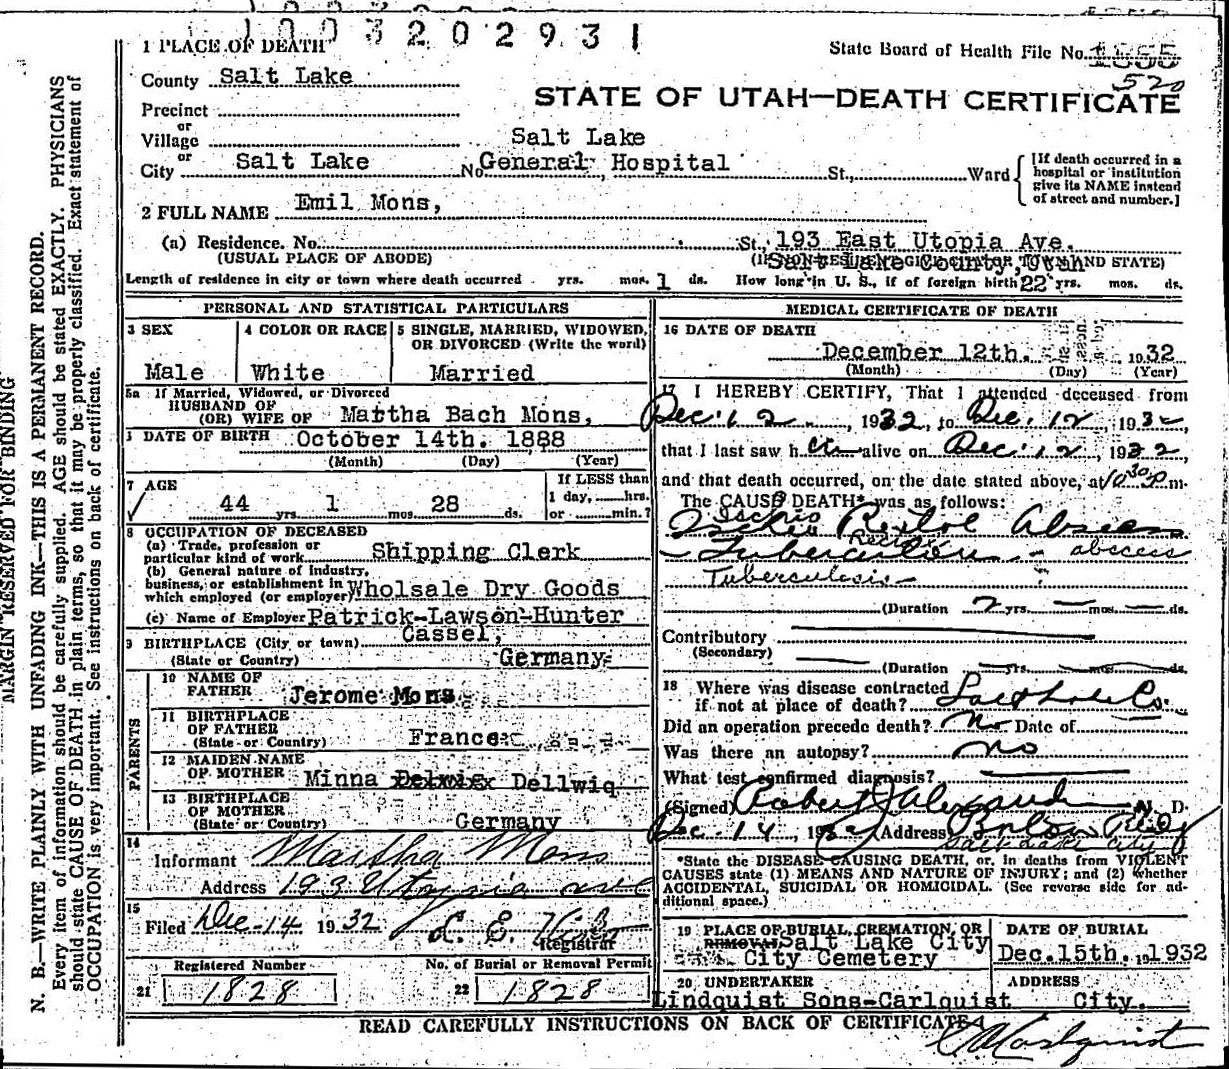 1003202931
1 PLACE OF DEATH
State Board of Health File No.
520
County Salt Lake
STATE OF UTAH—DEATH CERTIFICATE
Precinct
or
Village
Salt Lake
or
City Salt Lake No. General Hospital St., Ward
[If death occurred in a hospital or institution give its NAME instead of street and number.]
2 FULL NAME Emil Mons,
(a) Residence. No. St., 193 East Utopia Ave.
(USUAL PLACE OF ABODE) Salt Lake County, Utah
Length of residence in city or town where death occurred yrs. mos. 1 ds. How long in U. S., if of foreign birth 22 yrs. mos. ds.
PERSONAL AND STATISTICAL PARTICULARS
3 SEX
4 COLOR OR RACE
5 SINGLE, MARRIED, WIDOWED, OR DIVORCED (Write the word)
Male White Married
5a If Married, Widowed, or Divorced
HUSBAND OF
(OR) WIFE OF Mattha Bach Mons,
DATE OF BIRTH October 14th. 1888
(Month) (Day) (Year)
7 AGE
If LESS than
44 yrs. 1 mos. 28 ds.
1 day, hrs.
or min.?
8 OCCUPATION OF DECEASED
(a) Trade, profession or
particular kind of work Shipping Clerk
(b) General nature of Industry,
business, or establishment in
which employed (or employer) Wholsale Dry Goods
(c) Name of Employer Patrick-Lawson-Hunter
9 BIRTHPLACE (City or town) Cassel,
(State or Country) Germany
PARENTS
10 NAME OF
FATHER Jerome Mons
11 BIRTHPLACE
OF FATHER
(State or Country) France
12 MAIDEN NAME
OF MOTHER Minna Dellwiq
13 BIRTHPLACE
OF MOTHER
(State or Country) Germany
14
Informant Martha Mons
Address 193 Utopia ave
15
Filed Dec-14 1932
Registrar
Registered Number
No. of Burial or Removal Permit
21 1828
22 1828
MEDICAL CERTIFICATE OF DEATH
16 DATE OF DEATH
December 12th. 1932
(Month) (Day) (Year)
17 I HEREBY CERTIFY, That I attended deceased from
Dec. 12, 1932, to Dec. 12, 1932,
that I last saw h alive on Dec. 12, 1932,
and that death occurred, on the date stated above, at 10 30 P m.
The CAUSE DEATH* was as follows:
Ischio Rectal Abscess
Tubercular abscess
Tuberculosis
(Duration 2 yrs. — mos. — ds.
Contributory
(Secondary)
(Duration yrs. mos. ds.
18 Where was disease contracted
if not at place of death? Salt Lake Co.
Did an operation precede death? No Date of
Was there an autopsy? no
What test confirmed diagnosis?
(Signed) Robert J Alexander M. D.
Dec. 14, 193 (Address) Boston Bldg
Salt Lake City
*State the DISEASE CAUSING DEATH, or, in deaths from VIOLENT
CAUSES state (1) MEANS AND NATURE OF INJURY; and (2) whether
ACCIDENTAL, SUICIDAL OR HOMICIDAL. (See reverse side for ad-
ditional space.)
19 PLACE OF BURIAL, CREMATION, OR
REMOVAL Salt Lake City
City Cemetery
DATE OF BURIAL
Dec. 15th. 1932
20 UNDERTAKER
Lindquist Sons-Carlquist
ADDRESS
City.
READ CAREFULLY INSTRUCTIONS ON BACK OF CERTIFICATE
MARGIN RESERVED FOR BINDING
N. B.—WRITE PLAINLY WITH UNFADING INK—THIS IS A PERMANENT RECORD.
Every item of information should be carefully supplied. AGE should be stated EXACTLY. PHYSICIANS
should state CAUSE OF DEATH in plain terms, so that it may be properly classified. Exact statement of
OCCUPATION is very important. See instructions on back of certificate.